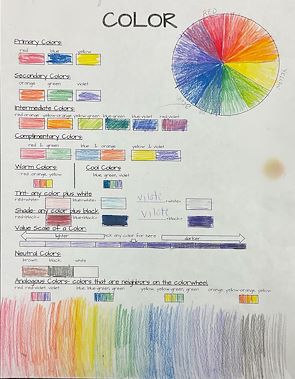 COLOR
RED
Primary Colors:
red blue yellow
Secondary Colors:
orange green violet
Intermediate Colors:
red-orange yellow-orange yellow-green blue-green blue-violet red-violet
Complimentary Colors:
red & green blue & orange yellow & violet
Warm Colors: Cool Colors:
red, orange, yellow blue, green, violet
Tint- any color plus white
red+white= +white=
violete
Shade- any color plus black
red+black= +black=
violete
Value Scale of a Color
lighter pick any color for here darker
Neutral Colors:
brown, black, white
Analogous Colors- colors that are neighbors on the colorwheel
red, red-violet, violet blue, blue-green, green yellow, yellow-green, green orange, yellow-orange, yellow